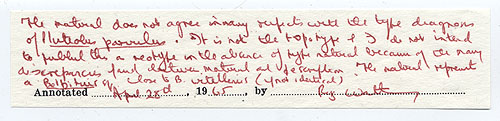 The material does not agree in many respects with the type diagnosis
of Pluteolus parvulus. It is not the topotype & I do not intend
to publish this a neotype in the absence of type material because of the many
discrepancies found between material and description. The material represents
a Bolbitius sp close to B. vitellinus (if not identical).
Annotated April 28d, 1965, by Roy Watling